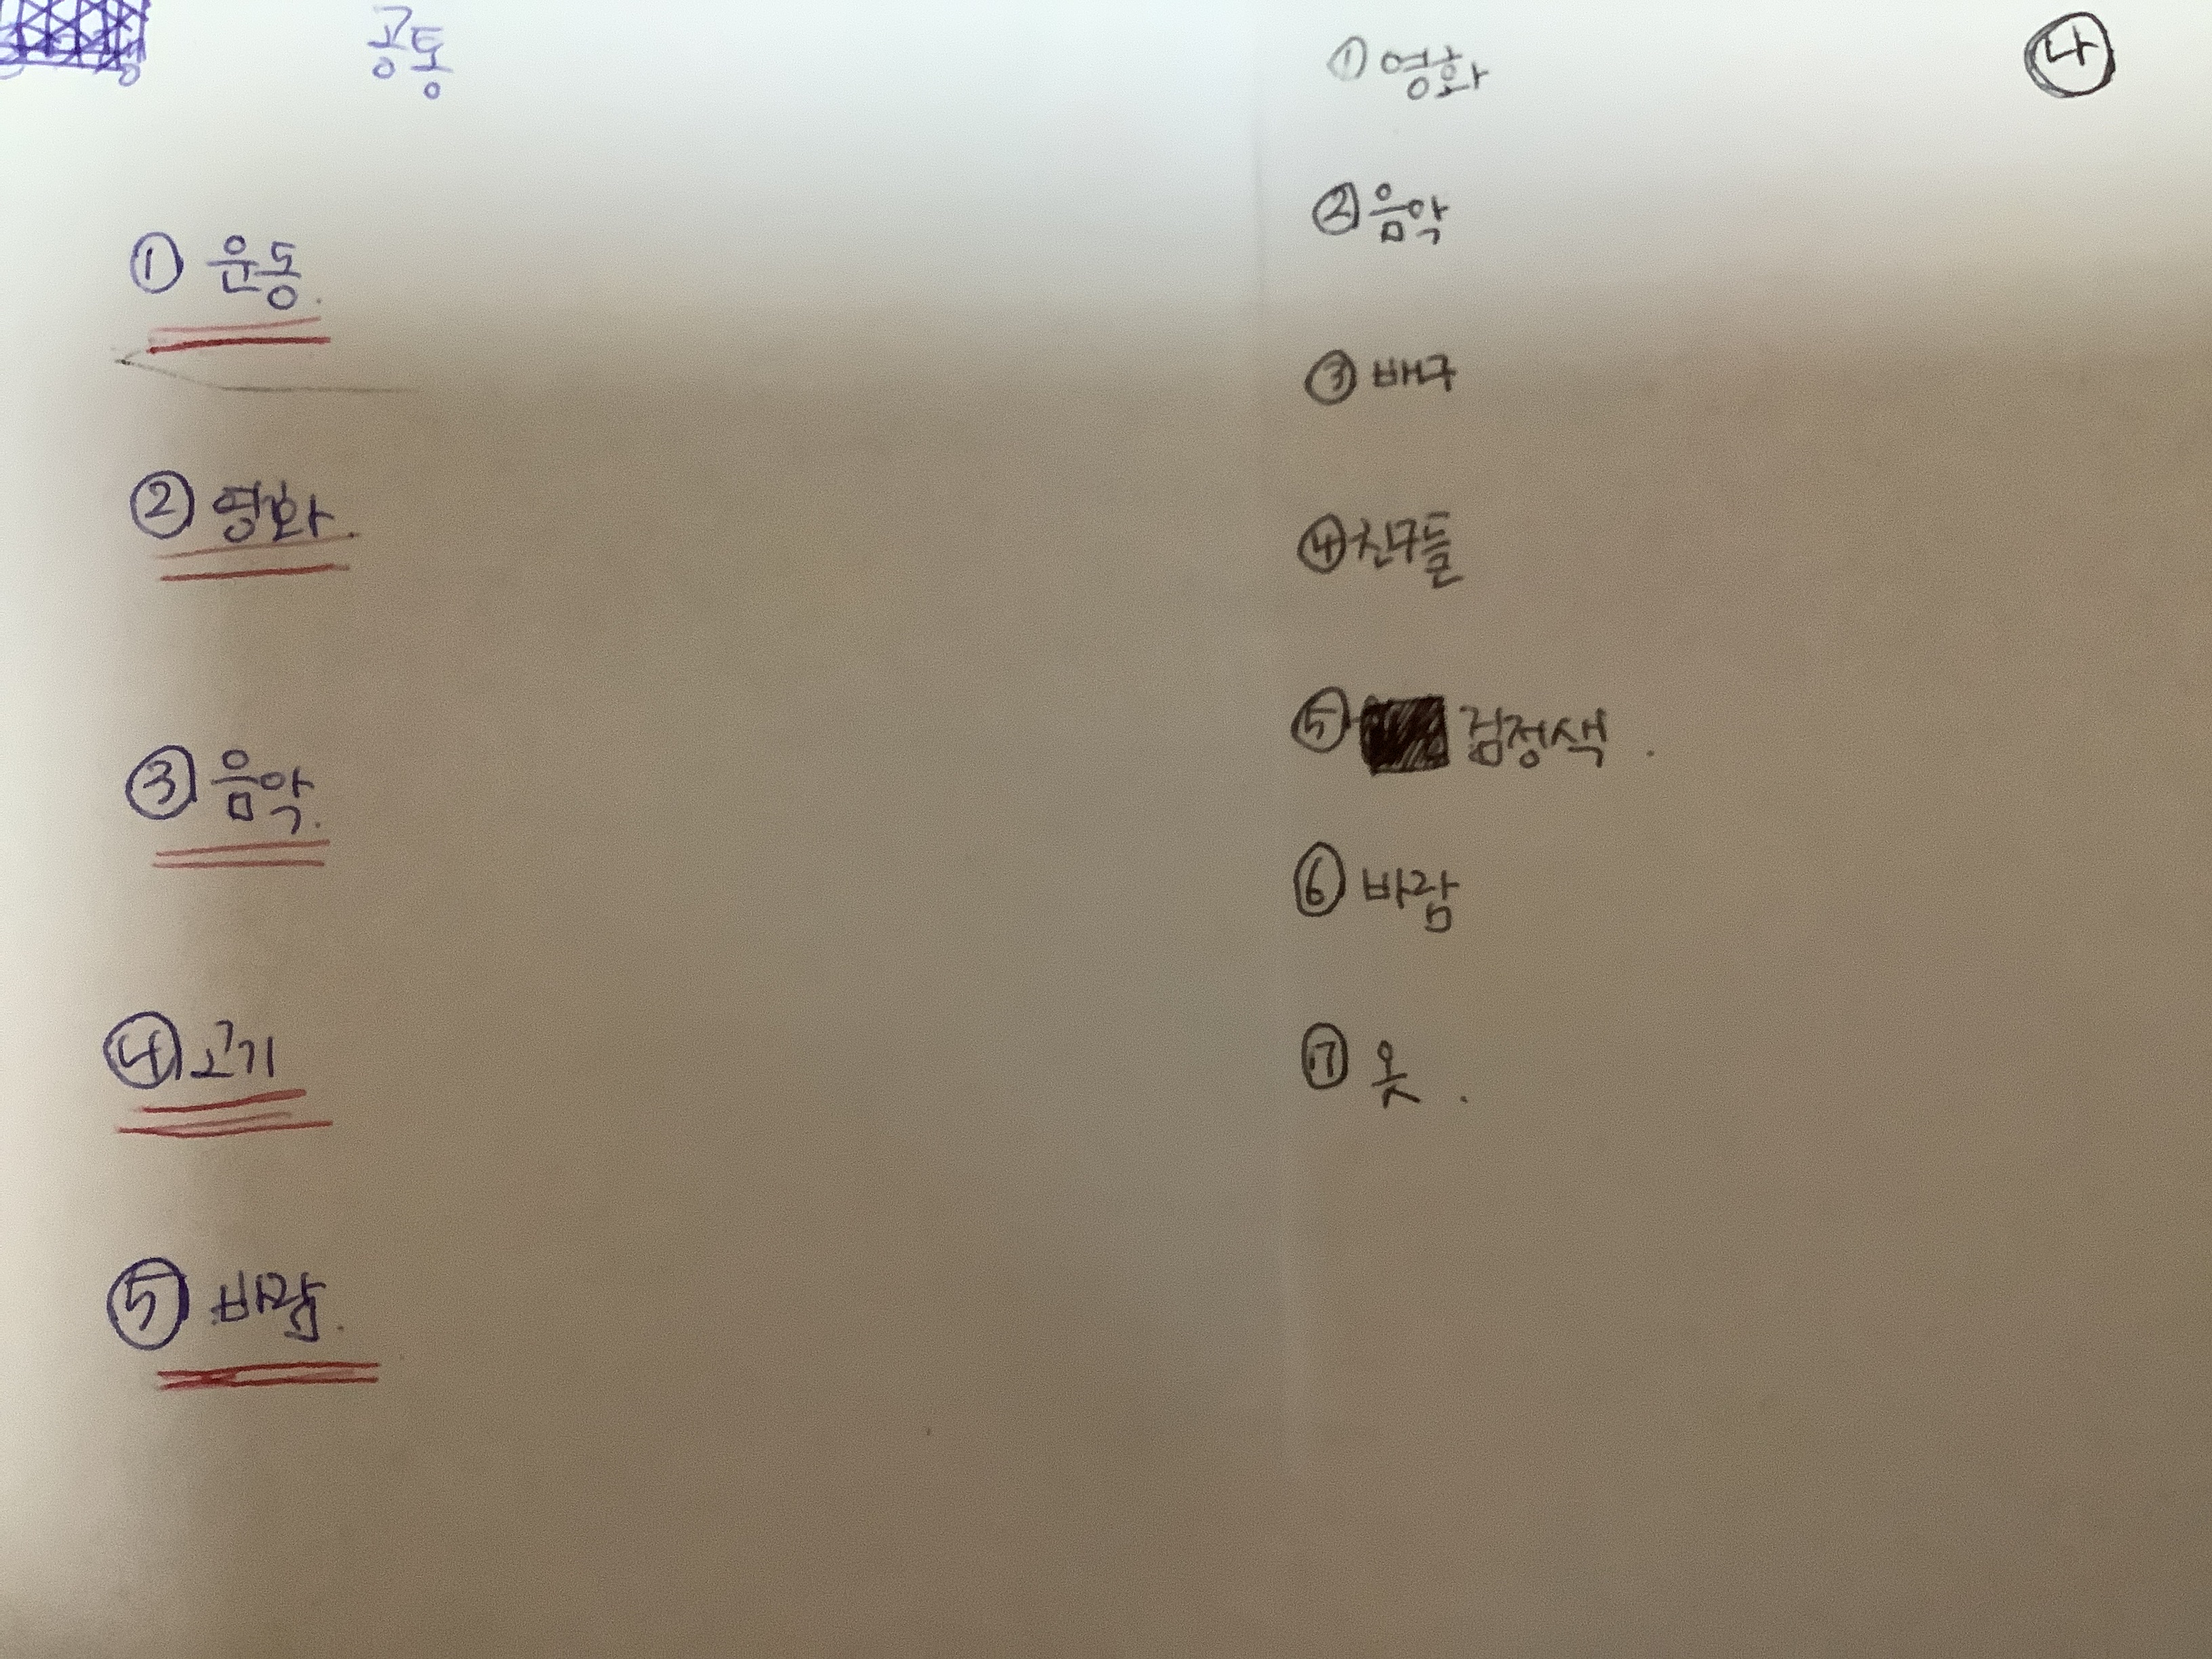 공통
① 운동.
② 영화.
③ 음악.
④ 고기
⑤ 바람.
나
① 영화
② 음악
③ 배구
④ 친구들
⑤ 검정색.
⑥ 바람
⑦ 옷.